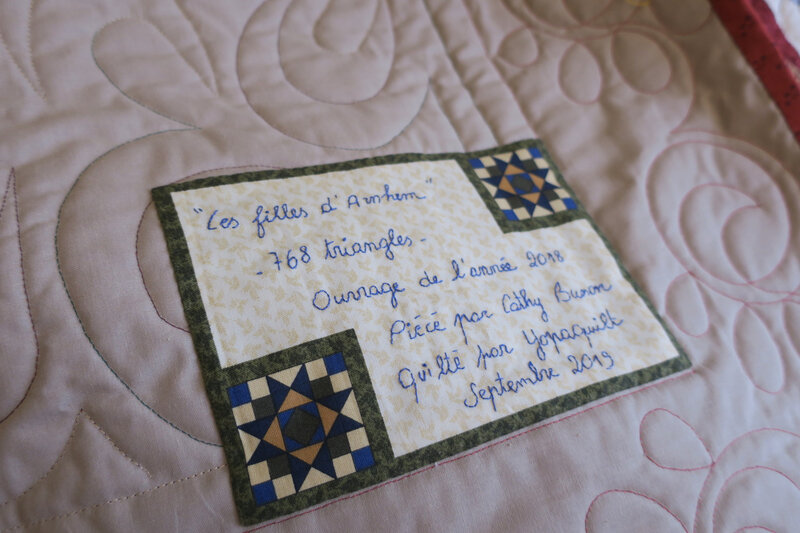 "Les filles d'Arnhem"
- 768 triangles -
Ouvrage de l'année 2018
Piécé par Cathy Buron
Quilté par Yopaquilt
Septembre 2019